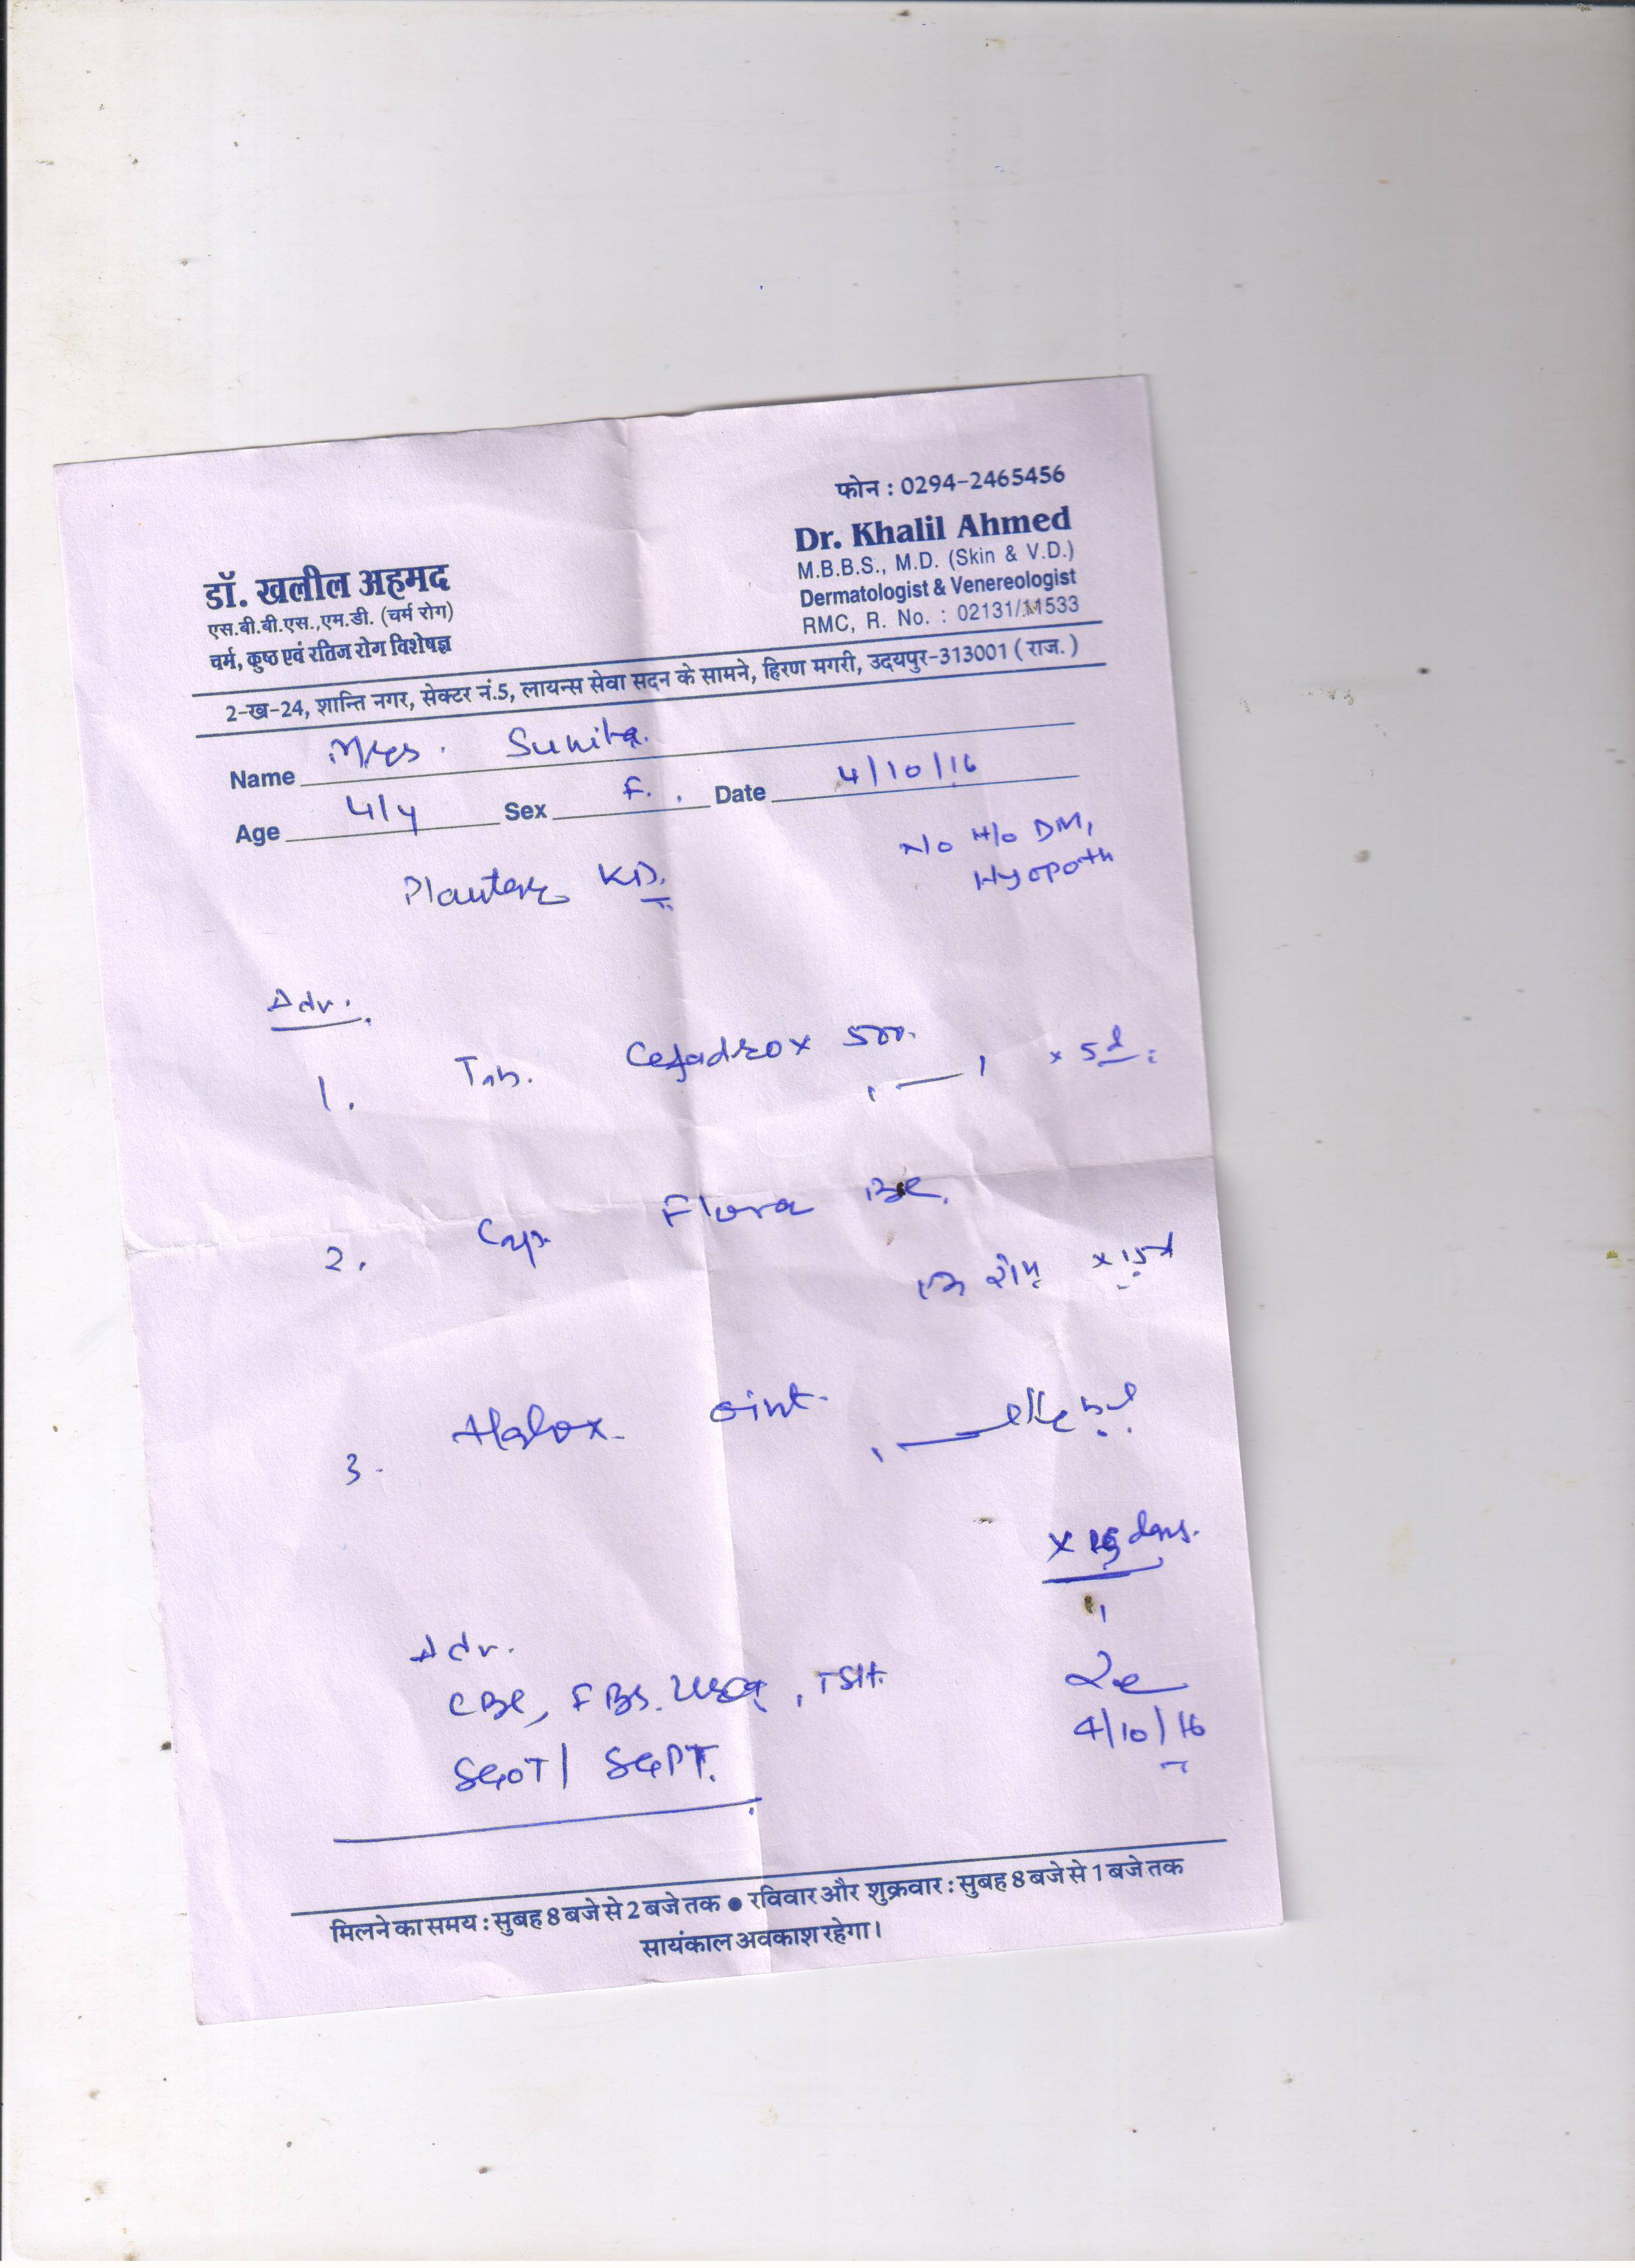 फोन : 0294-2465456
डॉ. खलील अहमद
एस.बी.बी.एस.,एम.डी. (चर्म रोग)
चर्म, कुष्ठ एवं रतिज रोग विशेषज्ञ
Dr. Khalil Ahmed
M.B.B.S., M.D. (Skin & V.D.)
Dermatologist & Venereologist
RMC, R. No. : 02131/11533
2-ख-24, शान्ति नगर, सेक्टर नं.5, लायन्स सेवा सदन के सामने, हिरण मगरी, उदयपुर-313001 ( राज. )
Name Mrs. Sunita.
Age 41y Sex F. Date 4/10/16
N/o H/o DM,
Plantar KD.
Adv.
1. Tab. Cefadrox 500.
1—1 x 5d
2. Cap. Flora BC.
एक रोज x 15d
3. Halox oint.
x 15 days.
Adv.
CBC, FBS. , TSH.
SGOT/ SGPT.
4/10/16
मिलने का समय : सुबह 8 बजे से 2 बजे तक ● रविवार और शुक्रवार : सुबह 8 बजे से 1 बजे तक
सायंकाल अवकाश रहेगा।